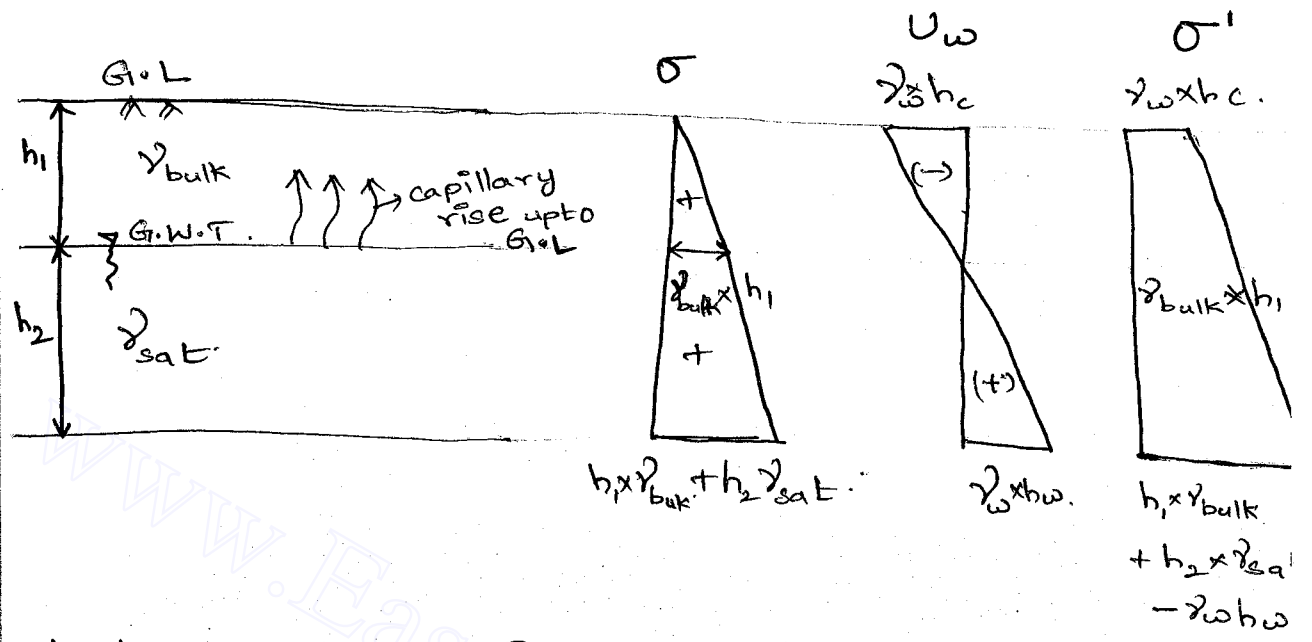 G.L
h₁
γbulk
capillary
rise upto
G.L
G.W.T.
h₂
γsat.
σ
+
γbulk × h₁
+
h₁×γbulk + h₂ γsat.
Uw
γw×hc
(-)
(+)
γw×hw.
σ'
γw×hc.
γbulk × h₁
h₁×γbulk
+ h₂×γsat
- γwhw
www.Eas